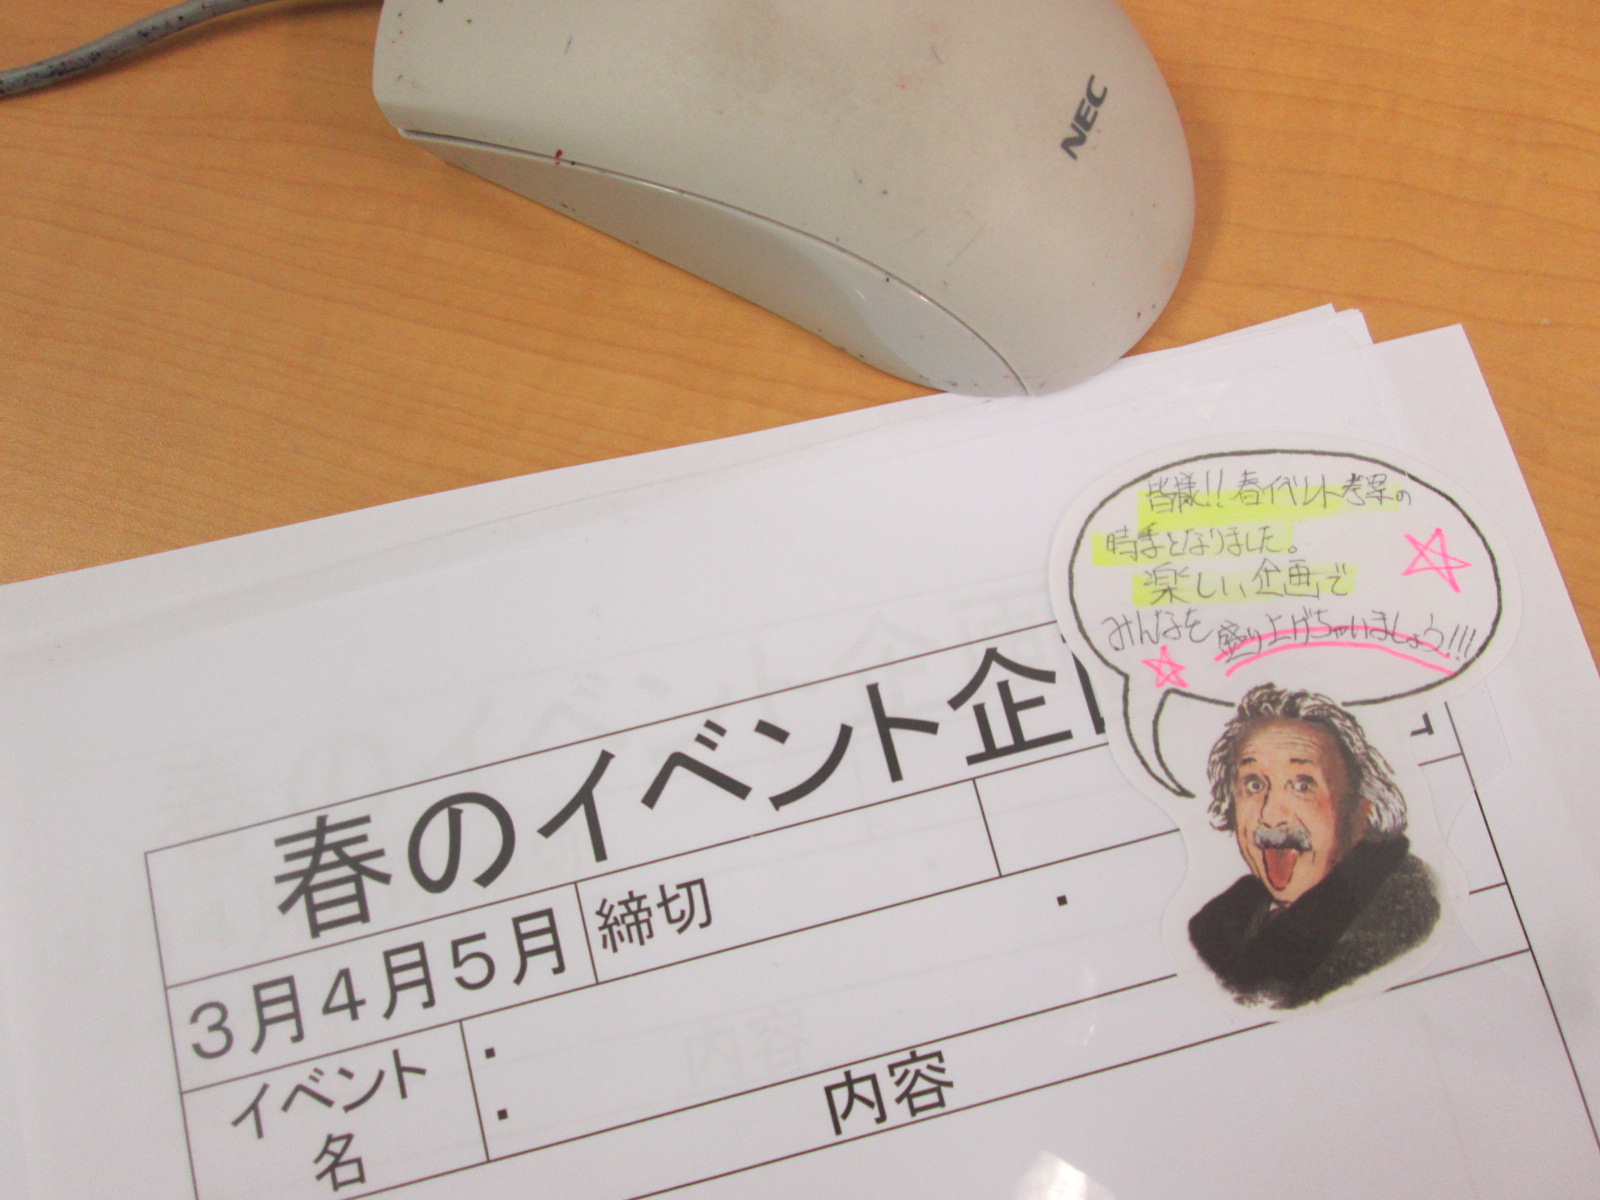 NEC
皆様!!春イベント考案の
時季となりました。
楽しい企画で
みんなを盛り上げちゃいましょう!!!
春のイベント企
3月4月5月
締切
イベント
名
内容